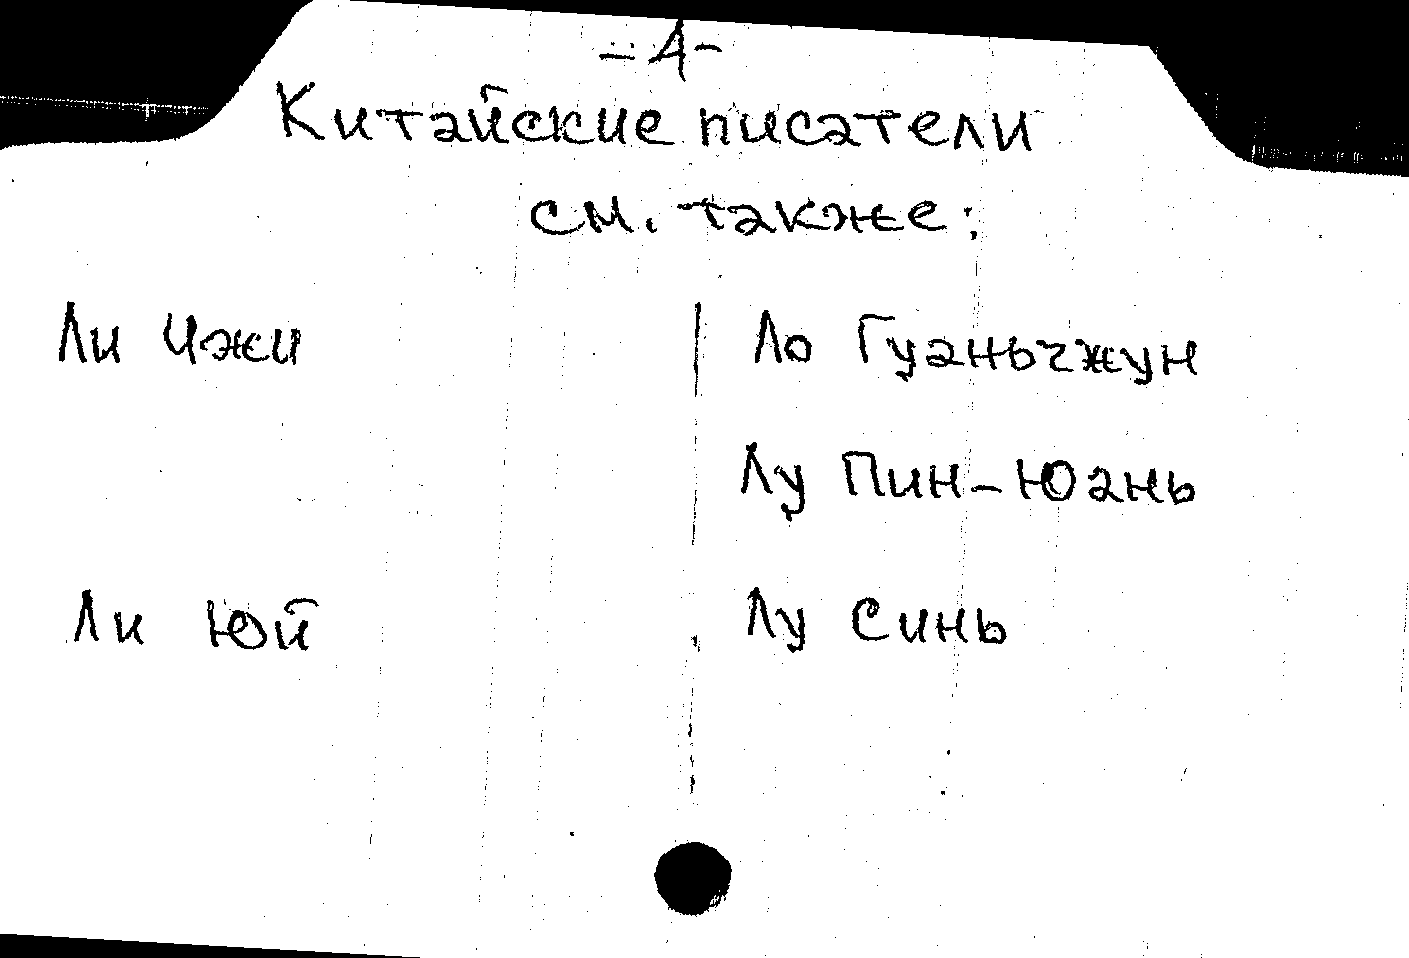 - 4 -
Китайские писатели
см. также:
Ли Чжи
Ло Гуаньчжун
Лу Пин-Юань
Ли Юй
Лу Синь